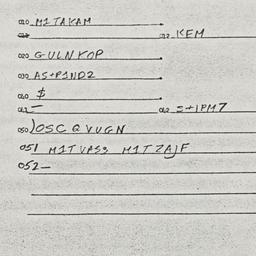 010 M1TAKAM
012 KEM
020 GULNKOP
030 AS+P1ND2
040 $
042 =+1PM7
050 JOSC Q VUGN
051 M1TVPS3 M1TZAJF
052-